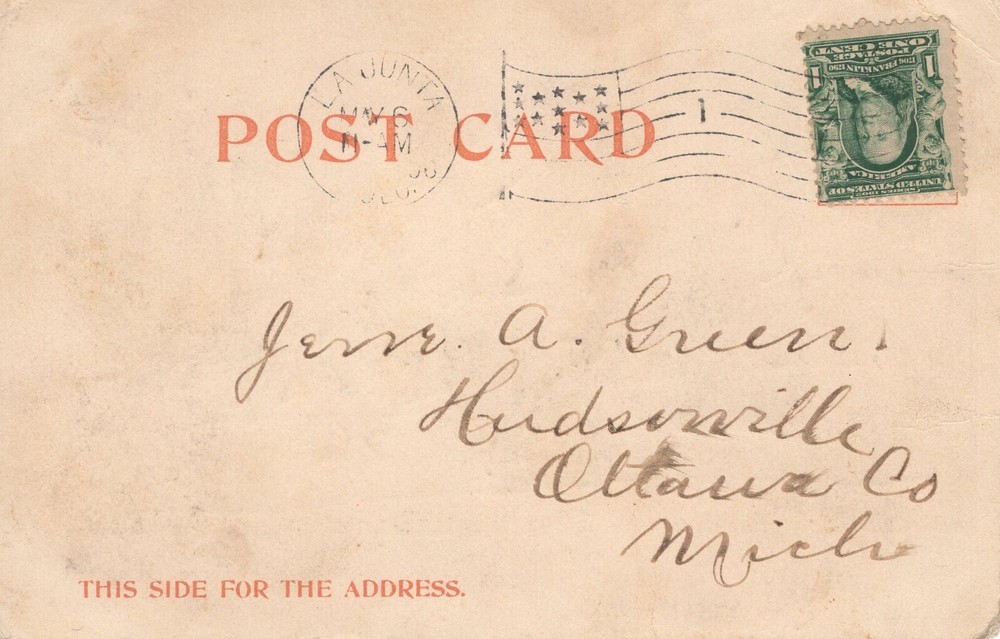 LA JUNTA
MAY 6
11-AM
COLO.
1
POST CARD
POSTAGE
ONE CENT
1706 FRANKLIN 1790
1 1
SERIES 1902
UNITED STATES OF
AMERICA
Jesse A. Green.
Hudsonville
Ottawa Co
Mich
THIS SIDE FOR THE ADDRESS.